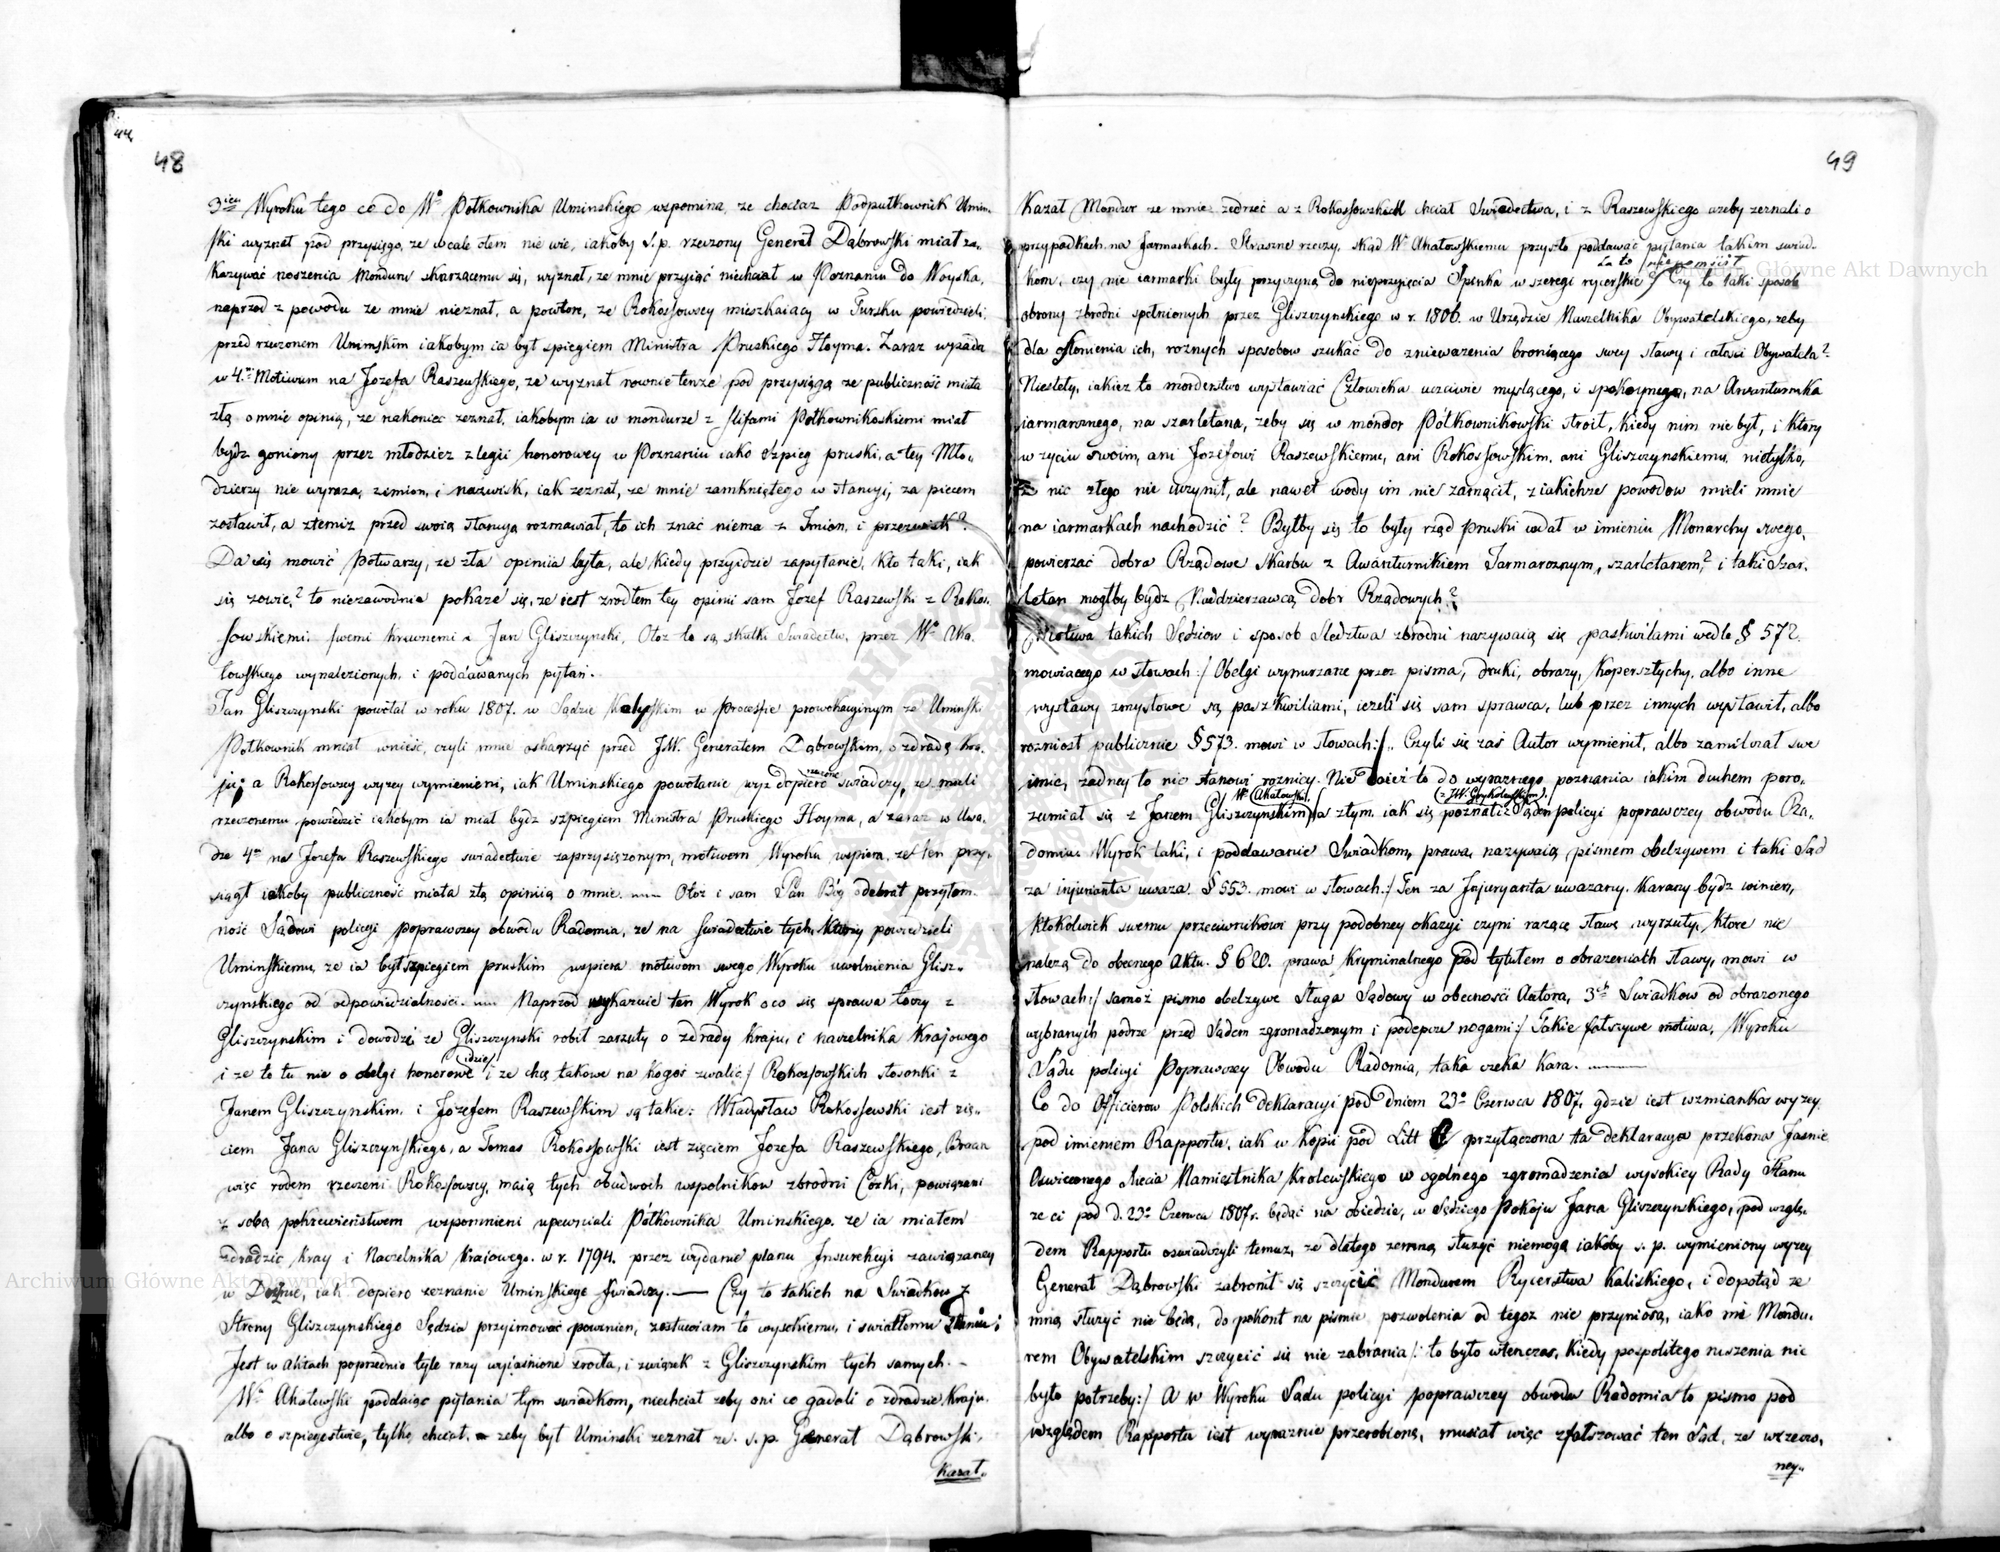 44
48
3ien Wyroku tego co do Wo Półkownika Uminskiego wspomina, że chociaż Podpułkownik Umin-
ski wyznał pod przysięgą, że wcale otem nie wie, iakoby s. p. rzeczony Generał Dąbrowski miał za-
kazywać noszenia Monduru skarzącemu się, wyznał, że mnie przyiąć niechciał w Poznaniu do Woyska,
naprzod z powodu że mnie nieznał, a powtore, że Rokossowscy mieszkaiący w Tursku powiedzieli
przed rzeczonem Uminskim iakobym ia był spiegiem Ministra Pruskiego Hoyma. Zaraz wpada
w 4. Motiwum na Jozefa Raszewskiego, że wyznał rownie tenże pod przysięgą że publiczność miała
złą o mnie opinią, że nakoniec zeznał, iakobym ia w mondurze z szlifami Półkownikoskiemi miał
bydz goniony przez młodzież z legii honorowey w Poznaniu iako szpieg pruski, a tey Mło-
dzierzy nie wyraża, z imion, i nazwisk, iak zeznał, że mnie zamkniętego w stancyi, za piecem
zostawił, a ztemiż przed swoią stancyą rozmawiał, to ich znać niema z Imion, i przezwisk?
Da się mowić Potwarzy, że zła opiniia była, ale kiedy przyidzie zapytanie, kto taki, iak
się zowie,? to niezawodnie pokaże się, że iest zrodłem tey opinii sam Jozef Raszewski z Rokos-
sowskiemi, swemi krewnemi a Jan Gliszczynski. Otoż to są skutki Swiadectw, przez Wo Aka-
towskiego wynalezionych, i poddawanych pytań.
Jan Gliszczynski powołał w roku 1807. w Sądzie Kalyskim w Processie prowokacyinym że Uminski
Półkownik miał wnieść, czyli mnie oskarżyć przed JW. Generałem Dąbrowskim, o zdradę kra-
ju; a Rokossowscy wyżey wymienieni, iak Uminskiego powołanie wyz rzeczone dopiero swiadczy, że mieli
rzeczonemu powiedzić iakobym ia miał bydz szpiegiem Ministra Pruskiego Hoyma, a zaraz w Uwa-
dze 4o na Jozefa Raszewskiego swiadectwie zaprzysiężonym, motiwom Wyroku wspiera, że ten przy-
siągł iakoby publiczność miała złą opiniią o mnie. Otoż i sam Pan Bóg odebrał przytom-
ność Sądowi policyi poprawczey obwodu Radomia, że na swiadectwie tych, którzy powiedzieli
Uminskiemu, że ia był szpiegiem pruskim wspiera motiwom swego Wyroku uwolnienia Glisz-
czynskiego od odpowiedzialności. Naprzod wykazuie ten Wyrok o co się sprawa toczy z
Gliszczynskim i dowodzi że Gliszczynski robił zarzuty o zdrady kraju, i naczelnika krajowego
i ze to tu nie o obelgi honorowe idzie i że chcę takowe na kogoś zwalić,/ Rokossowskich stosonki z
Janem Gliszczynskim, i Józefem Raszewskim są takie: Władysław Rokossowski iest zię-
ciem Jana Gliszczynskiego, a Tomas Rokossowski iest zięciem Jozefa Raszewskiego, Bracia
więc rodem rzeczeni Rokossowscy, maią tych obudwoch wspolnikow zbrodni Corki, powiązani
z sobą pokrewieństwem wspomnieni upewniali Półkownika Uminskiego, że ia miałem
zdradzić kray i Naczelnika Krajowego w r. 1794. przez wydanie planu Insurekcyi zawiązaney
w Drznie, iak dopiero zeznanie Uminskiego swiadczy. — Czy to takich na Swiadkow z
Strony Gliszczynskiego Sędzia przyimować powinien, zostawiam to wysokiemu, i swiatłemu zdaniu;
Jest w aktach poprzednio tyle razy wyjaśnione zrodła, i związek z Gliszczynskim tych samych. —
Wo Akatowski poddaiąc pytania tym swiadkom, niechciał żeby oni co gadali o zdradzie kraju,
albo o szpiegostwie, tylko chciał, żeby był Uminski zeznał że s. p. Generał Dąbrowski,
kazał..
49
Kazał Mondur ze mnie zedrzeć a z Rokossowskich chciał Swiadectwa, i z Raszewskiego ażeby zeznali o
przypadkach na Jarmarkach. Straszne rzeczy, skąd Wo Akatowskiemu przyszło poddawać pytania takim swiad-
kom, czy nie iarmarki były przyczyną do nieprzyięcia Spinka w szeregi rycerskie za to nie pomścił / Czy to taki sposob
obrony zbrodni spełnionych przez Gliszczynskiego w r. 1806. w Urzędzie Naczelnika Obywatelskiego, żeby
dla osłonienia ich, rożnych sposobow szukać do zniewazenia broniącego swey sławy i całości Obywatela?
Niestety, iakież to morderstwo wystawiać Człowieka uczciwie myslącego, i spokoynego, na Awanturnika
iarmarcznego, na szarletana, żeby się w mondor Półkownikowski stroił, kiedy nim nie był, i ktory
w życiu swoim, ani Jozifowi Raszewskiemu, ani Rokossowskim, ani Gliszczynskiemu, nietylko,
że nic złego nie uczynił, ale nawet wody im nie zamącił, z iakichże powodow mieli mnie
na iarmarkach nachodzić? Byłby się to były rząd pruski wdał w imieniu Monarchy swego,
powierzać dobra Rządowe Skarbu z Awanturnikiem Jarmarcznym, szarletanem,? i taki Szar-
letan mogłby bydz Naddzierzawcą dobr Rządowych?
Motiwa takich Sędziow i sposob Sledztwa zbrodni nazywaią się paskwilami wedle § 572.
mowiacego w słowach:/ Obelgi wynurzane przez pisma, druki, obrazy, kopersztychy, albo inne
wystawy zmysłowe są paszkwiliami, ieżeli się sam sprawca, lub przez innych wystawił, albo
rozniosł publicznie § 573. mowi w słowach:/,, Czyli się zaś Autor wymienił, albo zamilczał swe
imie, żadney to nie stanowi roznicy. Nie dośc to do wyraznego poznania iakim duchem poro-
zumiał się z Janem Gliszczynskim Wo Akatowski, a złym, iak się poznał: (z JW. Grykolewskim) Sąd policyi poprawczey obwodu Ra-
domiu. Wyrok taki, i poddawanie Swiadkom, prawa, nazywaią pismem obelzywem i taki Sąd
za injurianta uwaza. § 553. mowi w słowach:/ Ten za Injuryanta uwazany, karany bydz winien,
ktokolwiek swemu przeciwnikowi przy podobney okazyi czyni rażące sławę wyrzuty, ktore nie
należą do obecnego Aktu. § 620. prawa Kryminalnego pod tytułem o obrazeniach sławy, mowi w
słowach:/ samoż pismo obelzywe Sługa Sądowy w obecności Autora, 3ch Swiadkow od obrazonego
wybranych podrze przed Sądem zgromadzonym i podepcze nogami:/ Takie fałszywe motiwa, Wyroku
Sądu policyi Poprawczey Obwodu Radomia, taka czeka kara.
Co do Officierow Polskich deklaracyi pod dniem 23o Czerwca 1807. gdzie iest wzmianka wyzey
pod imieniem Rapportu, iak w kopii pod Litt O przyłączona ta deklaracya przekona Jasnie
Oswieconego Xiecia Namiestnika Krolewskiego w ogolnego zgromadzenia wysokiey Rady Stanu
że ci pod d. 23o Czerwca 1807r. będąc na obiedzie, w Sędziego Pokoju Jana Gliszczynskiego, pod wzglę-
dem Rapportu oswiadczyli temuż, że dlatego zemną służyć niemogą iakoby s. p. wymieniony wyzey
Generał Dąbrowski zabronił się szczycić Mondurem Rycerstwa kaliskiego, i dopotąd ze
mną służyć nie będą, dopokont na pismie pozwolenia od tegoż nie przyniosą, iako mi Mondu-
rem Obywatelskim szczycić się nie zabrania/: to było wtenczas, kiedy pospolitego ruszenia nie
było potrzeby:/ A w Wyroku Sadu policyi poprawczey obwodu Radomia to pismo pod
względem Rapportu iest wyraznie przerobiona, musiał więc zfałszować ten Sąd, że wrzeczo-
ney..
Archiwum Główne Akt Dawnych
Archiwum Główne Akt Dawnych